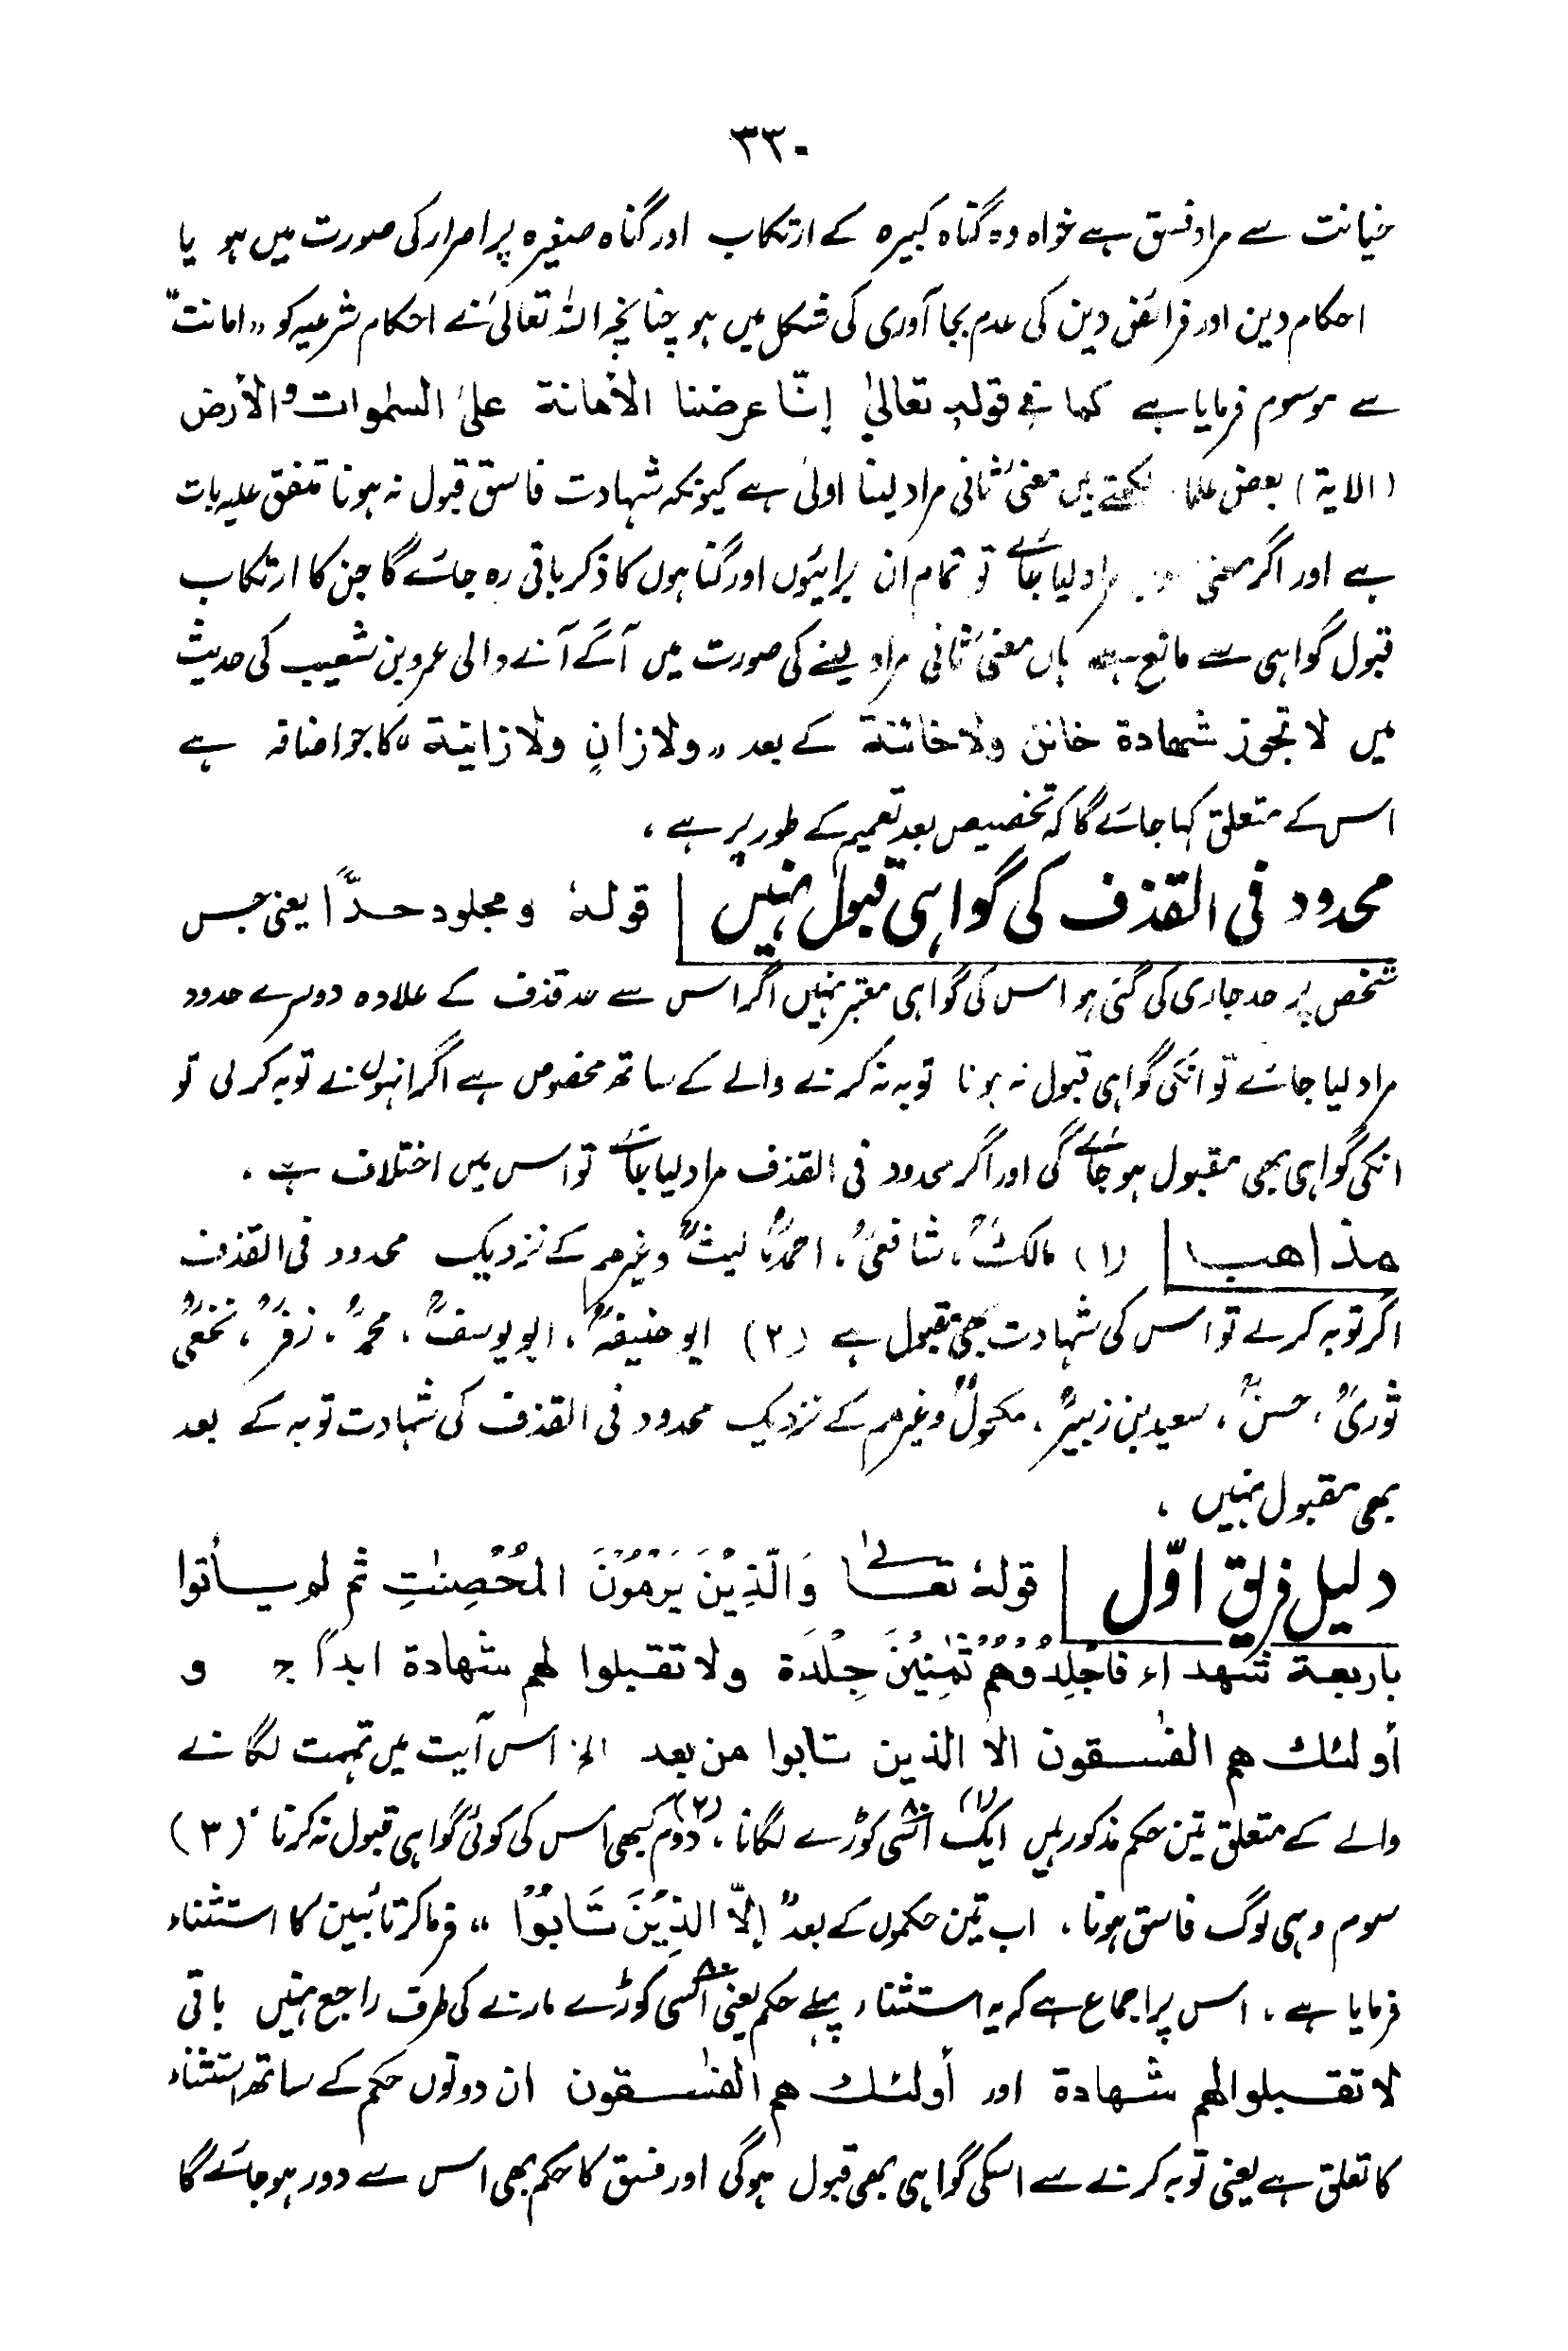 ۳۳۰
خیانت سے مراد فسق ہے خواہ وہ گناہ کبیرہ کے ارتکاب اور گناہ صغیرہ پر اصرار کی صورت میں ہو یا
احکام دین اور فرائض دین کی عدم بجا آوری کی شکل میں ہو چنانچہ اللہ تعالیٰ نے احکام شرعیہ کو «امانت»
سے موسوم فرمایا ہے کما فی قولہٖ تعالیٰ إنّا عرضنا الأمانة علیٰ السمٰوات والأرض
(الایة) بعض علماء لکھتے ہیں معنیٔ ثانی مراد لینا اولیٰ ہے کیونکہ شہادت فاسق قبول نہ ہونا متفق علیہ بات
ہے اور اگر معنیٔ مراد لیا جائے تو تمام ان برائیوں اور گناہوں کا ذکر باقی رہ جائے گا جن کا ارتکاب
قبول گواہی سے مانع ہے ہاں معنیٔ ثانی مراد لینے کی صورت میں آگے آنے والی عمرو بن شعیب کی حدیث
میں لا تجوز شهادة خائن ولا خائنة کے بعد «ولا زانٍ ولا زانیة» کا جو اضافہ ہے
اس کے متعلق کہا جائے گا کہ تخصیص بعد تعمیم کے طور پر ہے ،
محدود فی القذف کی گواہی قبول نہیں | قولهٗ ومجلود حدًّا یعنی جس
شخص پر حد جاری کی گئی ہو اس کی گواہی معتبر نہیں اگر اس سے حد قذف کے علاوہ دوسرے حدود
مراد لیا جائے تو انکی گواہی قبول نہ ہونا توبہ نہ کرنے والے کے ساتھ مخصوص ہے اگر انہوں نے توبہ کر لی تو
انکی گواہی بھی مقبول ہو جائے گی اور اگر محدود فی القذف مراد لیا جائے تو اس میں اختلاف ہے ۔
مذاهب | (۱) مالکؒ ، شافعیؒ ، احمدؒ ، لیثؒ وغیرہم کے نزدیک محدود فی القذف
اگر توبہ کرلے تو اس کی شہادت بھی مقبول ہے (۲) ابو حنیفہؒ ، ابو یوسفؒ ، محمدؒ ، زفرؒ ، نخعیؒ
ثوریؒ ، حسنؒ ، سعید بن زبیرؒ ، مکحولؒ وغیرہم کے نزدیک محدود فی القذف کی شہادت توبہ کے بعد
بھی مقبول نہیں ،
دلیل فریق اوّل | قولهٗ تعالیٰ وَالَّذِیْنَ یَرْمُوْنَ الْمُحْصِنٰتِ ثم لم یأتوا
باربعة شهداء فَاجْلِدُوْهُمْ ثَمٰنِیْنَ جِلْدَة ولا تقبلوا لهم شهادة ابداً ج و
أولئك هم الفٰسقون الا الذین تابوا من بعد الخ اس آیت میں تہمت لگانے
والے کے متعلق تین حکم مذکور ہیں (۱) ایک اسّی ۸۰ کوڑے لگانا ، (۲) دوم کبھی اس کی کوئی گواہی قبول نہ کرنا ، (۳)
سوم وہی لوگ فاسق ہونا ، اب تین حکموں کے بعد "إلّا الذِیْنَ تَابُوْا" فرما کر تائبین کا استثناء
فرمایا ہے ، اس پر اجماع ہے کہ یہ استثناء پہلے حکم یعنی اسّی ۸۰ کوڑے مارنے کی طرف راجع نہیں باقی
لا تقبلوا لهم شهادة اور أولئك هم الفٰسقون ان دونوں حکم کے ساتھ استثناء
کا تعلق ہے یعنی توبہ کرنے سے اسکی گواہی بھی قبول ہوگی اور فسق کا حکم بھی اس سے دور ہو جائے گا